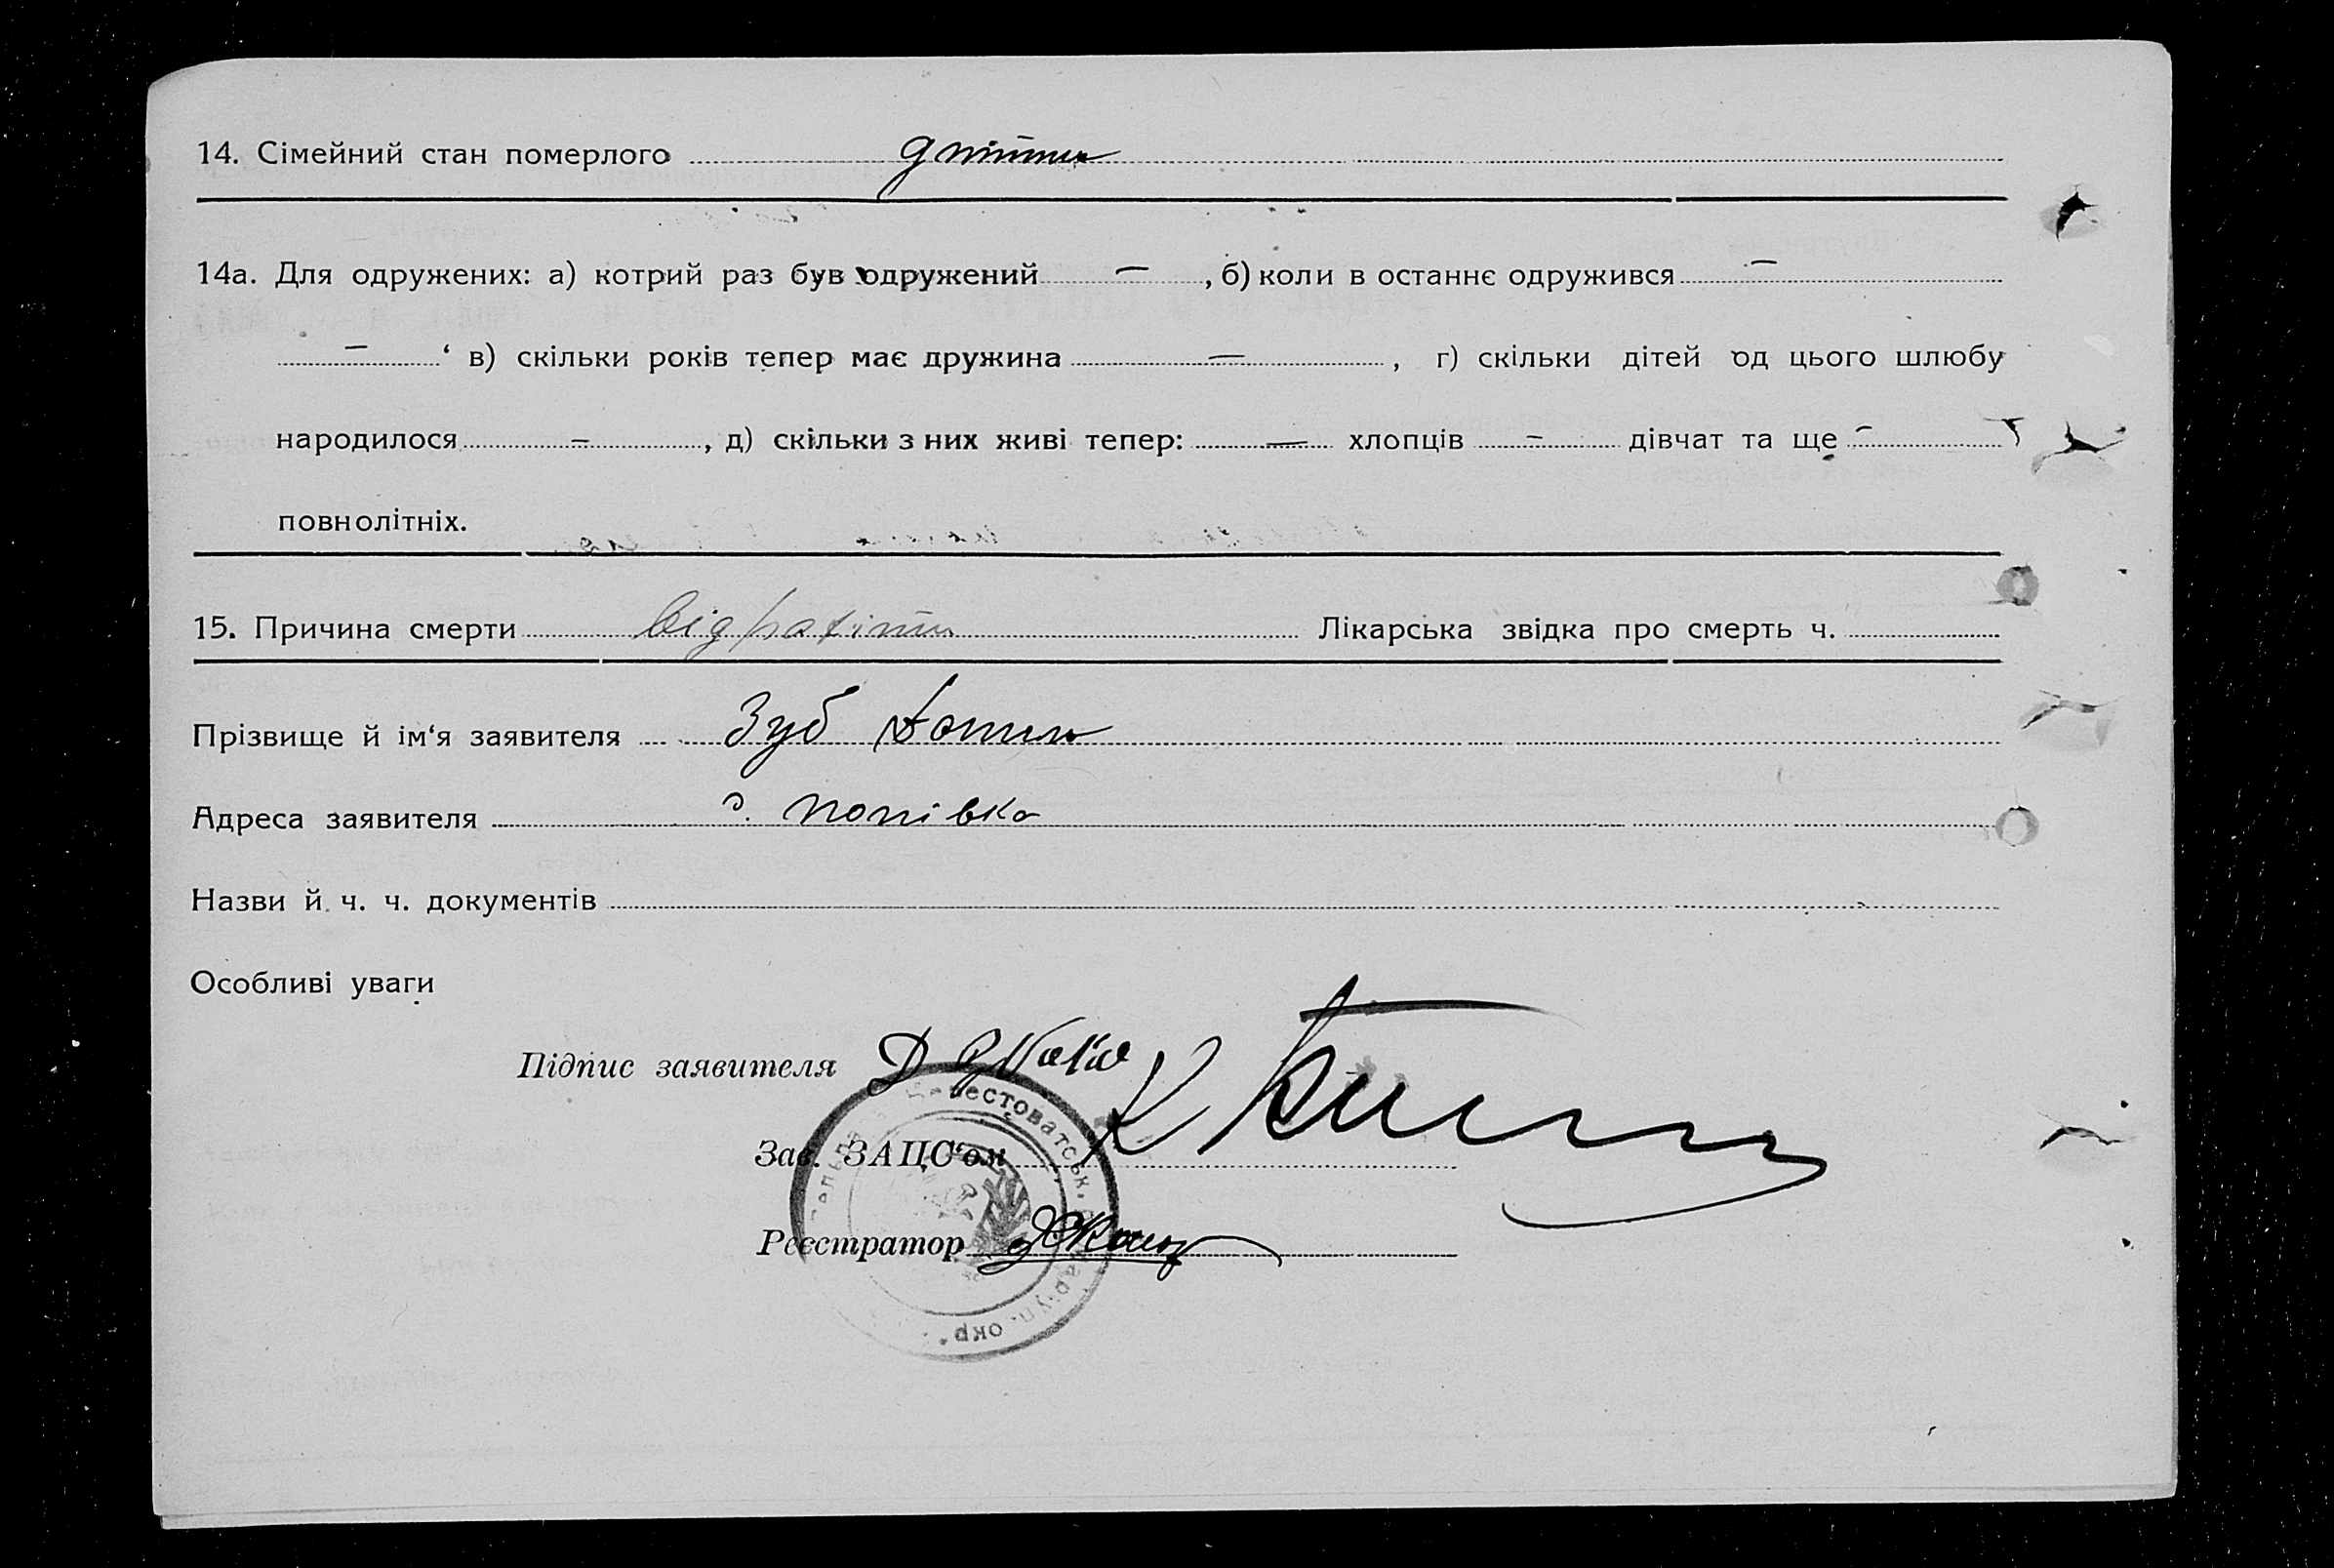 14. Сімейний стан померлого
14а. Для одружених: а) котрий раз був одружений —, б) коли в останнє одружився —
— ‘ в) скільки років тепер має дружина —, г) скільки дітей од цього шлюбу
народилося —, д) скільки з них живі тепер: — хлопців — дівчат та ще —
повнолітніх.
15. Причина смерти Лікарська звідка про смерть ч.
Прізвище й ім‘я заявителя Зуб
Адреса заявителя с. Попівка
Назви й ч. ч. документів
Особливі уваги
Підпис заявителя
Зав. ЗАЦС‘ом
Реєстратор
окр.